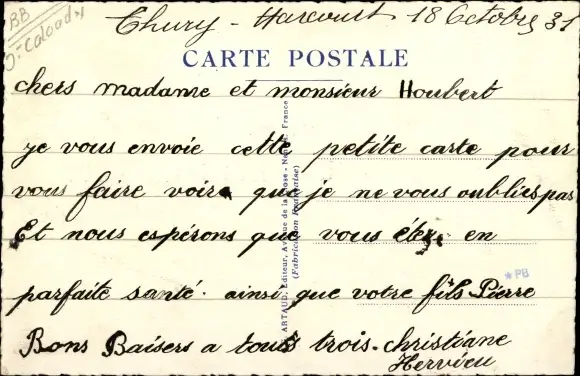 BB
Thury-Harcourt 18 Octobre 31
CARTE POSTALE
chers madame et monsieur Houbert
je vous envoie cette petite carte pour
vous faire voire que je ne vous oublies pas
Et nous espérons que vous étez en
parfaite santé. ainsi que votre fils Pierre
Bons Baisers a tous trois. christiane
Hervieu
ARTAUD, Editeur, Avenue de la Close - Nantes, France
(Fabrication Française)
*PB